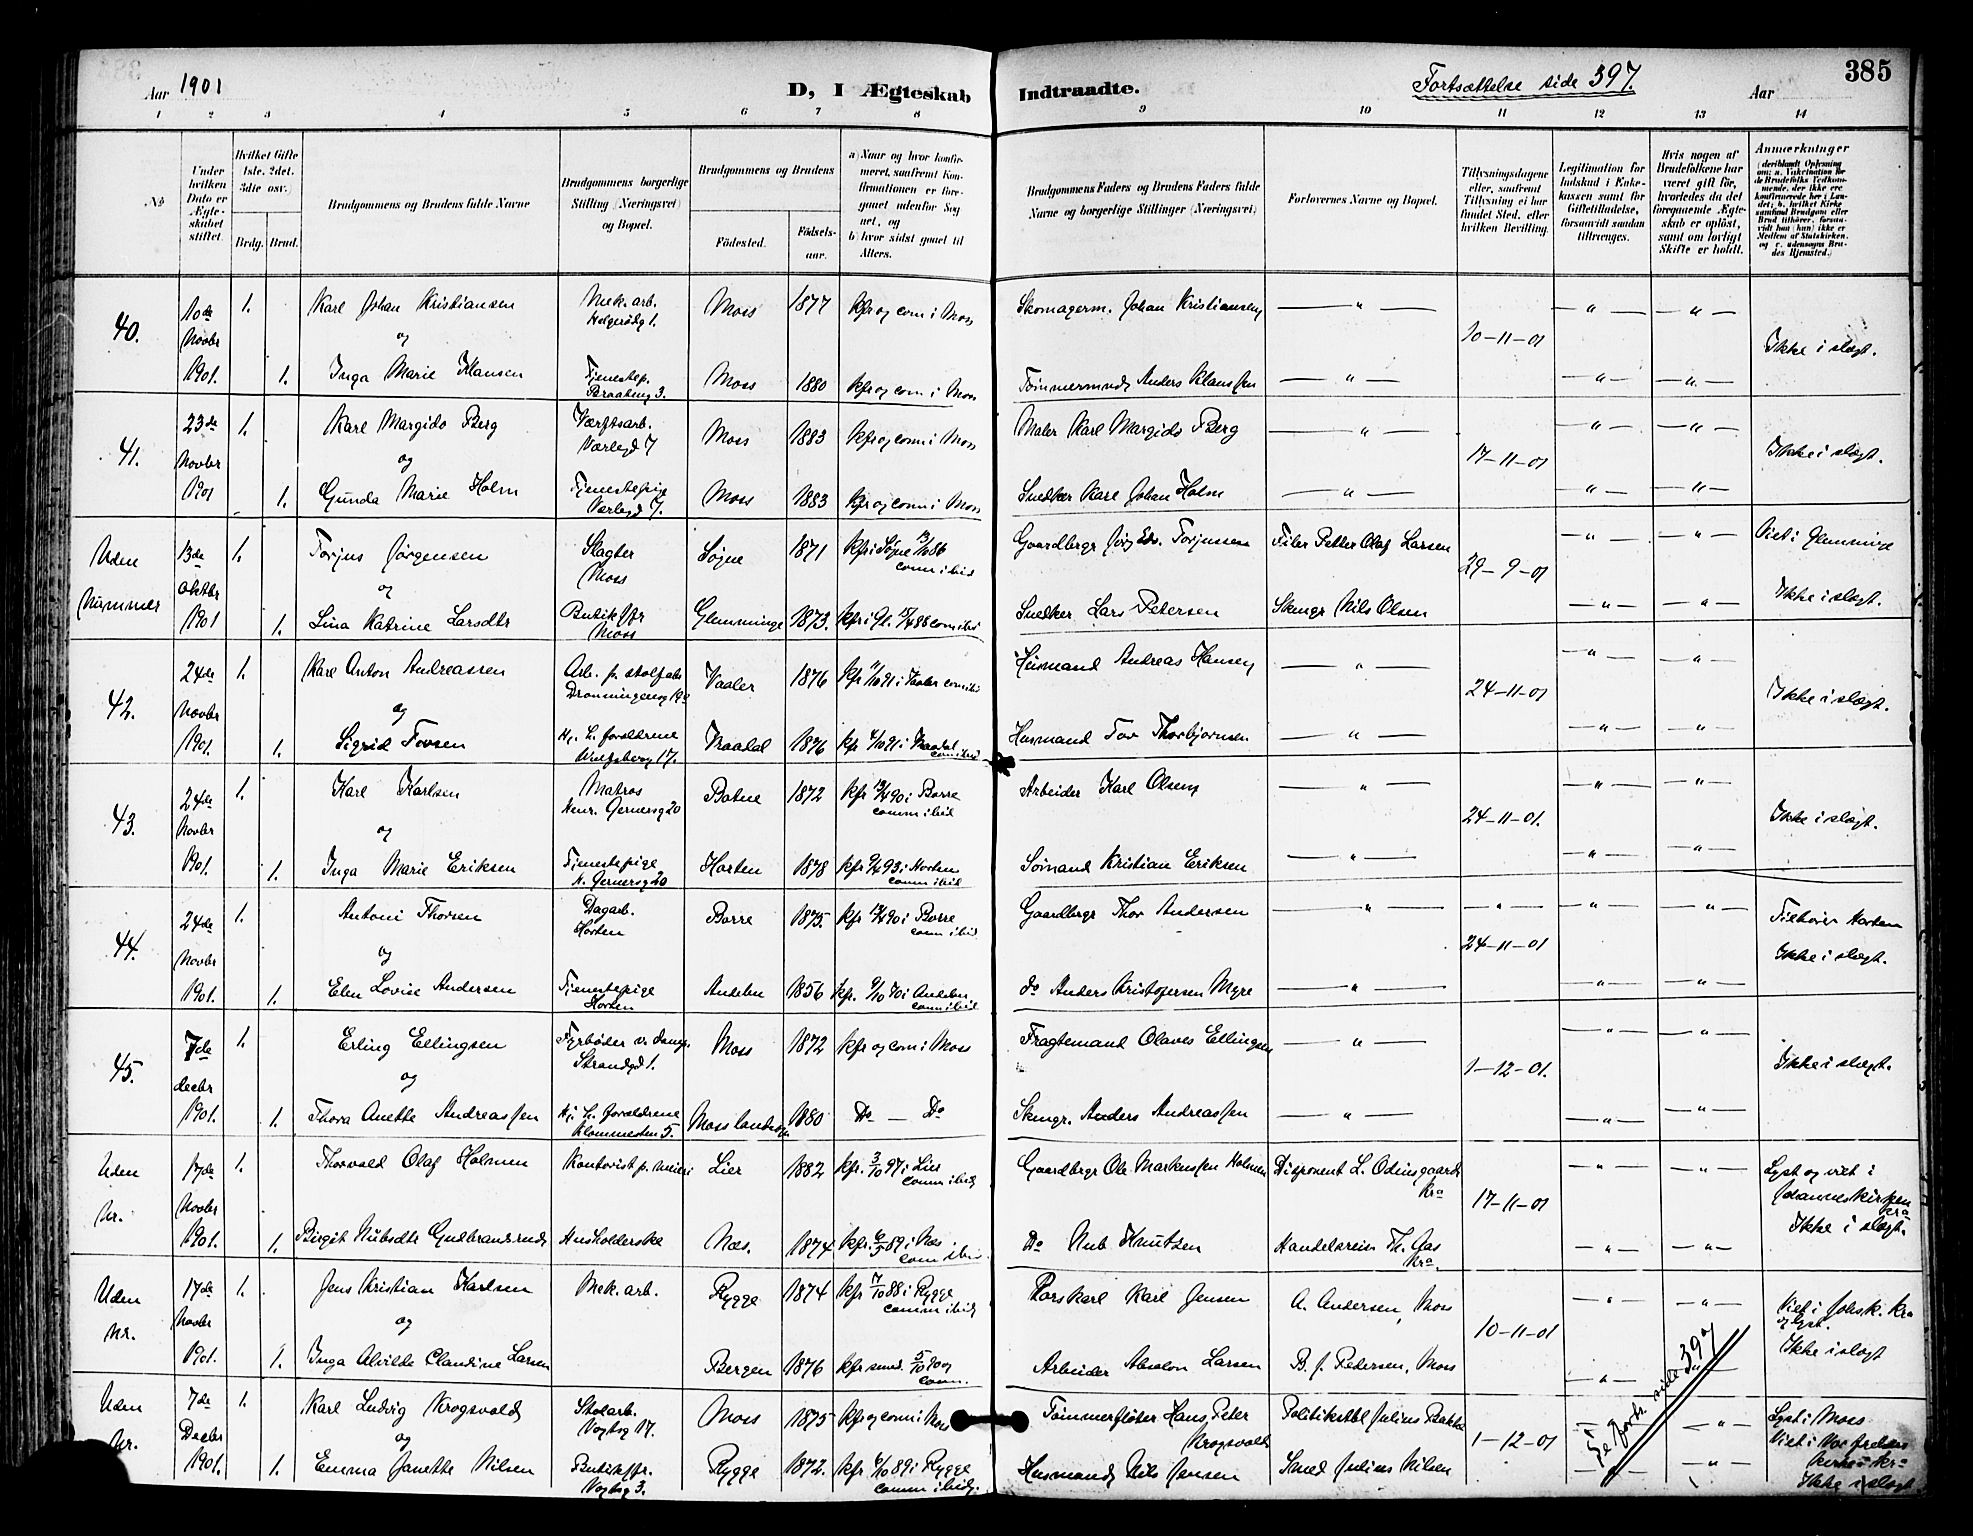 Aar 1901 D, I Ægteskab Indtraadte. Fortsættelse side 397. Aar 385
1 2 3 4 5 6 7 8 9 10 11 12 13 14
No
Under hvilken Dato er Ægteskabet stiftet.
Hvilket Gifte 1ste. 2det. 3die osv.)
Brdg. Brud.
Brudgommens og Brudens fulde Navne
Brudgommens borgerlige Stilling (Næringsvei) og Bopæl.
Brudgommens og Brudens
Fødested. Fødselsaar.
a) Naar og hvor konfirmeret, samt om Konfirmationen er foregaaet udenfor Sognet, og
b) hvor sidst gaaet til Alters.
Brudgommens Faders og Brudens Faders fulde Navne og borgerlige Stillinger (Næringsvei)
Forlovernes Navne og Bopæl.
Tillysningsdagene eller, saafremt Tillysning ei har fundet Sted, efter hvilken Bevilling.
Legitimation for Indskud i Enkekassen samt for Giftetilladelse, forsaavidt saadan tiltrænges.
Hvis nogen af Brudefolkene har været gift før, hvorledes da det foregaaende Ægteskab er opløst, samt om lovligt Skifte er holdt.
Anmærkninger
40. 10de Novbr 1901.
1. Karl Johan Kristiansen Mek. arb. Helgerødg 1. Moss 1877 kfr og com i Moss Skomagerm. Johan Kristiansen — " — 10-11-01 — " — — " — Ikke i slægt.
og
1. Inga Marie Klausen Tjenestep. Braateng 3. Moss 1880 kfr og com i Moss Tømmermand Anders Klaussen — " — — " — — " —
41. 23de Novbr 1901
1. Karl Margido Berg Værftsarb. Værlegd 7 Moss 1883 kfr og com i Moss Maler Karl Margido Berg — " — 17-11-01 — " — — " — Ikke i slægt.
og
1. Gunda Marie Holm Tjenestepige Værlegd 7. Moss 1883 kfr og com i Moss Snedker Karl Johan Holm — " — — " — — " —
Uden Nummer 13de Oktbr 1901
1. Torjus Jørgensen Slagter Moss Søgne 1871 kfr i Søgne 86 com ibid Gaardbrgr Jørg Torjussen Filer Petter Olaf Larsen 29-9-01 — " — — " — Viet i Glemminge
og Ikke i slægt.
1. Lina Katrine Larsdtr Butikfr Moss Glemminge 1873. kfr i Gl. 88 com ibid Snedker Lars Petersen Skmgr Nils Olsen — " — — " —
42. 24de Novbr 1901.
1. Karl Anton Andreassen Arb. p. stolfabr Dronningensg 19 Vaaler 1876 kfr 91 i Vaaler com ibid Husmand Andreas Hansen — " — 24-11-01 — " — — " — Ikke i slægt.
og
1. Sigrid Tovsen Hj. h. forældrene 17. Vraadal 1876 kfr 91 i Vraadal com ibid Husmand Tov Thorbjørnsen — " — — " — — " —
43. 24de Novbr 1901.
1. Karl Karlsen Matros Henr. Gernersg 20 Botne 1872 kfr 90 i Borre comm ibid Arbeider Karl Olsen — " — 24-11-01. — " — — " — Ikke i slægt.
og
1. Inga Marie Eriksen Tjenestepige H. Gernersg 20 Horten 1878 kfr 93 i Horten comm ibid Sømand Kristian Eriksen — " — — " — — " —
44. 24de Novbr 1901.
1. Antoni Thorsen Dagarb. Horten Borre 1875. kfr 90 i Borre com ibid Gaardbrgr Thor Andersen — " — 24-11-01 — " — — " — Tilhører Horten
og Ikke i slægt.
1. Elen Lovise Andersen Tjenestepige Horten Andebu 1856 kfr. 9/10 70 i Andebu com ibid do Anders Kristofersen Myre — " — — " — — " —
45. 7de decbr 1901.
1. Erling Ellingsen Fyrbøder v. damp. Strandgd 1. Moss 1872 kfr og com i Moss Fragtemand Olaves Ellingsen — " — 1-12-01. — " — — " — Ikke i slægt.
og
1. Thora Anette Andreassen Hj. h. forældrene Klommesten 5. Moss landsogn 1880 Do — Do Skmgr. Anders Andreassen — " — — " — — " —
Uden Nr. 17de Novbr 1901.
1. Thorvald Olaf Holmen Kontorist p. meieri Lier 1882 kfr. 3/10 97 i Lier comm ibid Gaardbrgr Ole Markussen Holmen Disponent L. Odinsgaard Kra 17-11-01 — " — — " — Lyst og viet i Johanneskirken Kra Ikke i slægt.
1. Birgit Nubsdtr Gudbrandsrud Husholderske Næs. 1874 kfr. 89 i Næs. com ibid Do Nub Knutsen Handelsreis. Th. Gas Kra. — " — — " —
Uden Nr. 17de Novbr 1901.
1. Jens Kristian Karlsen Mek. arb. Rygge 1874 kfr 7/10 88 i Rygge comm ibid Karl Jensen A. Andersen, Moss 10-11-01 — " — — " — Viet i Johsk. Kra og lyst.
og Ikke i slægt
1. Inga Alvilde Claudine Larsen Bergen 1876 kfr smsd. 5/10 90 og comm. Arbeider Absalon Larsen B. J. Pedersen, Moss — " — — " —
Uden Nr. 7de Decbr 1901.
1. Karl Ludvig Krogsvold Stolarb. Vogtsg 17. Moss 1875 kfr og com i Moss Tømmerfløter Hans Peter Krogsvold Politikstbl Julius Bakke 1-12-01 — " — Lyst i Moss
og Viet i Vor frelsers Kirke i Kra
1. Emma Janette Nilsen Butikfr. Vogtsg 3. Rygge 1872. kfr 6/10 89 i Rygge comm ibid. Husmand Nils Jensen Smed Julius Nilsen — " — Ikke i slægt
Se forts. side 397